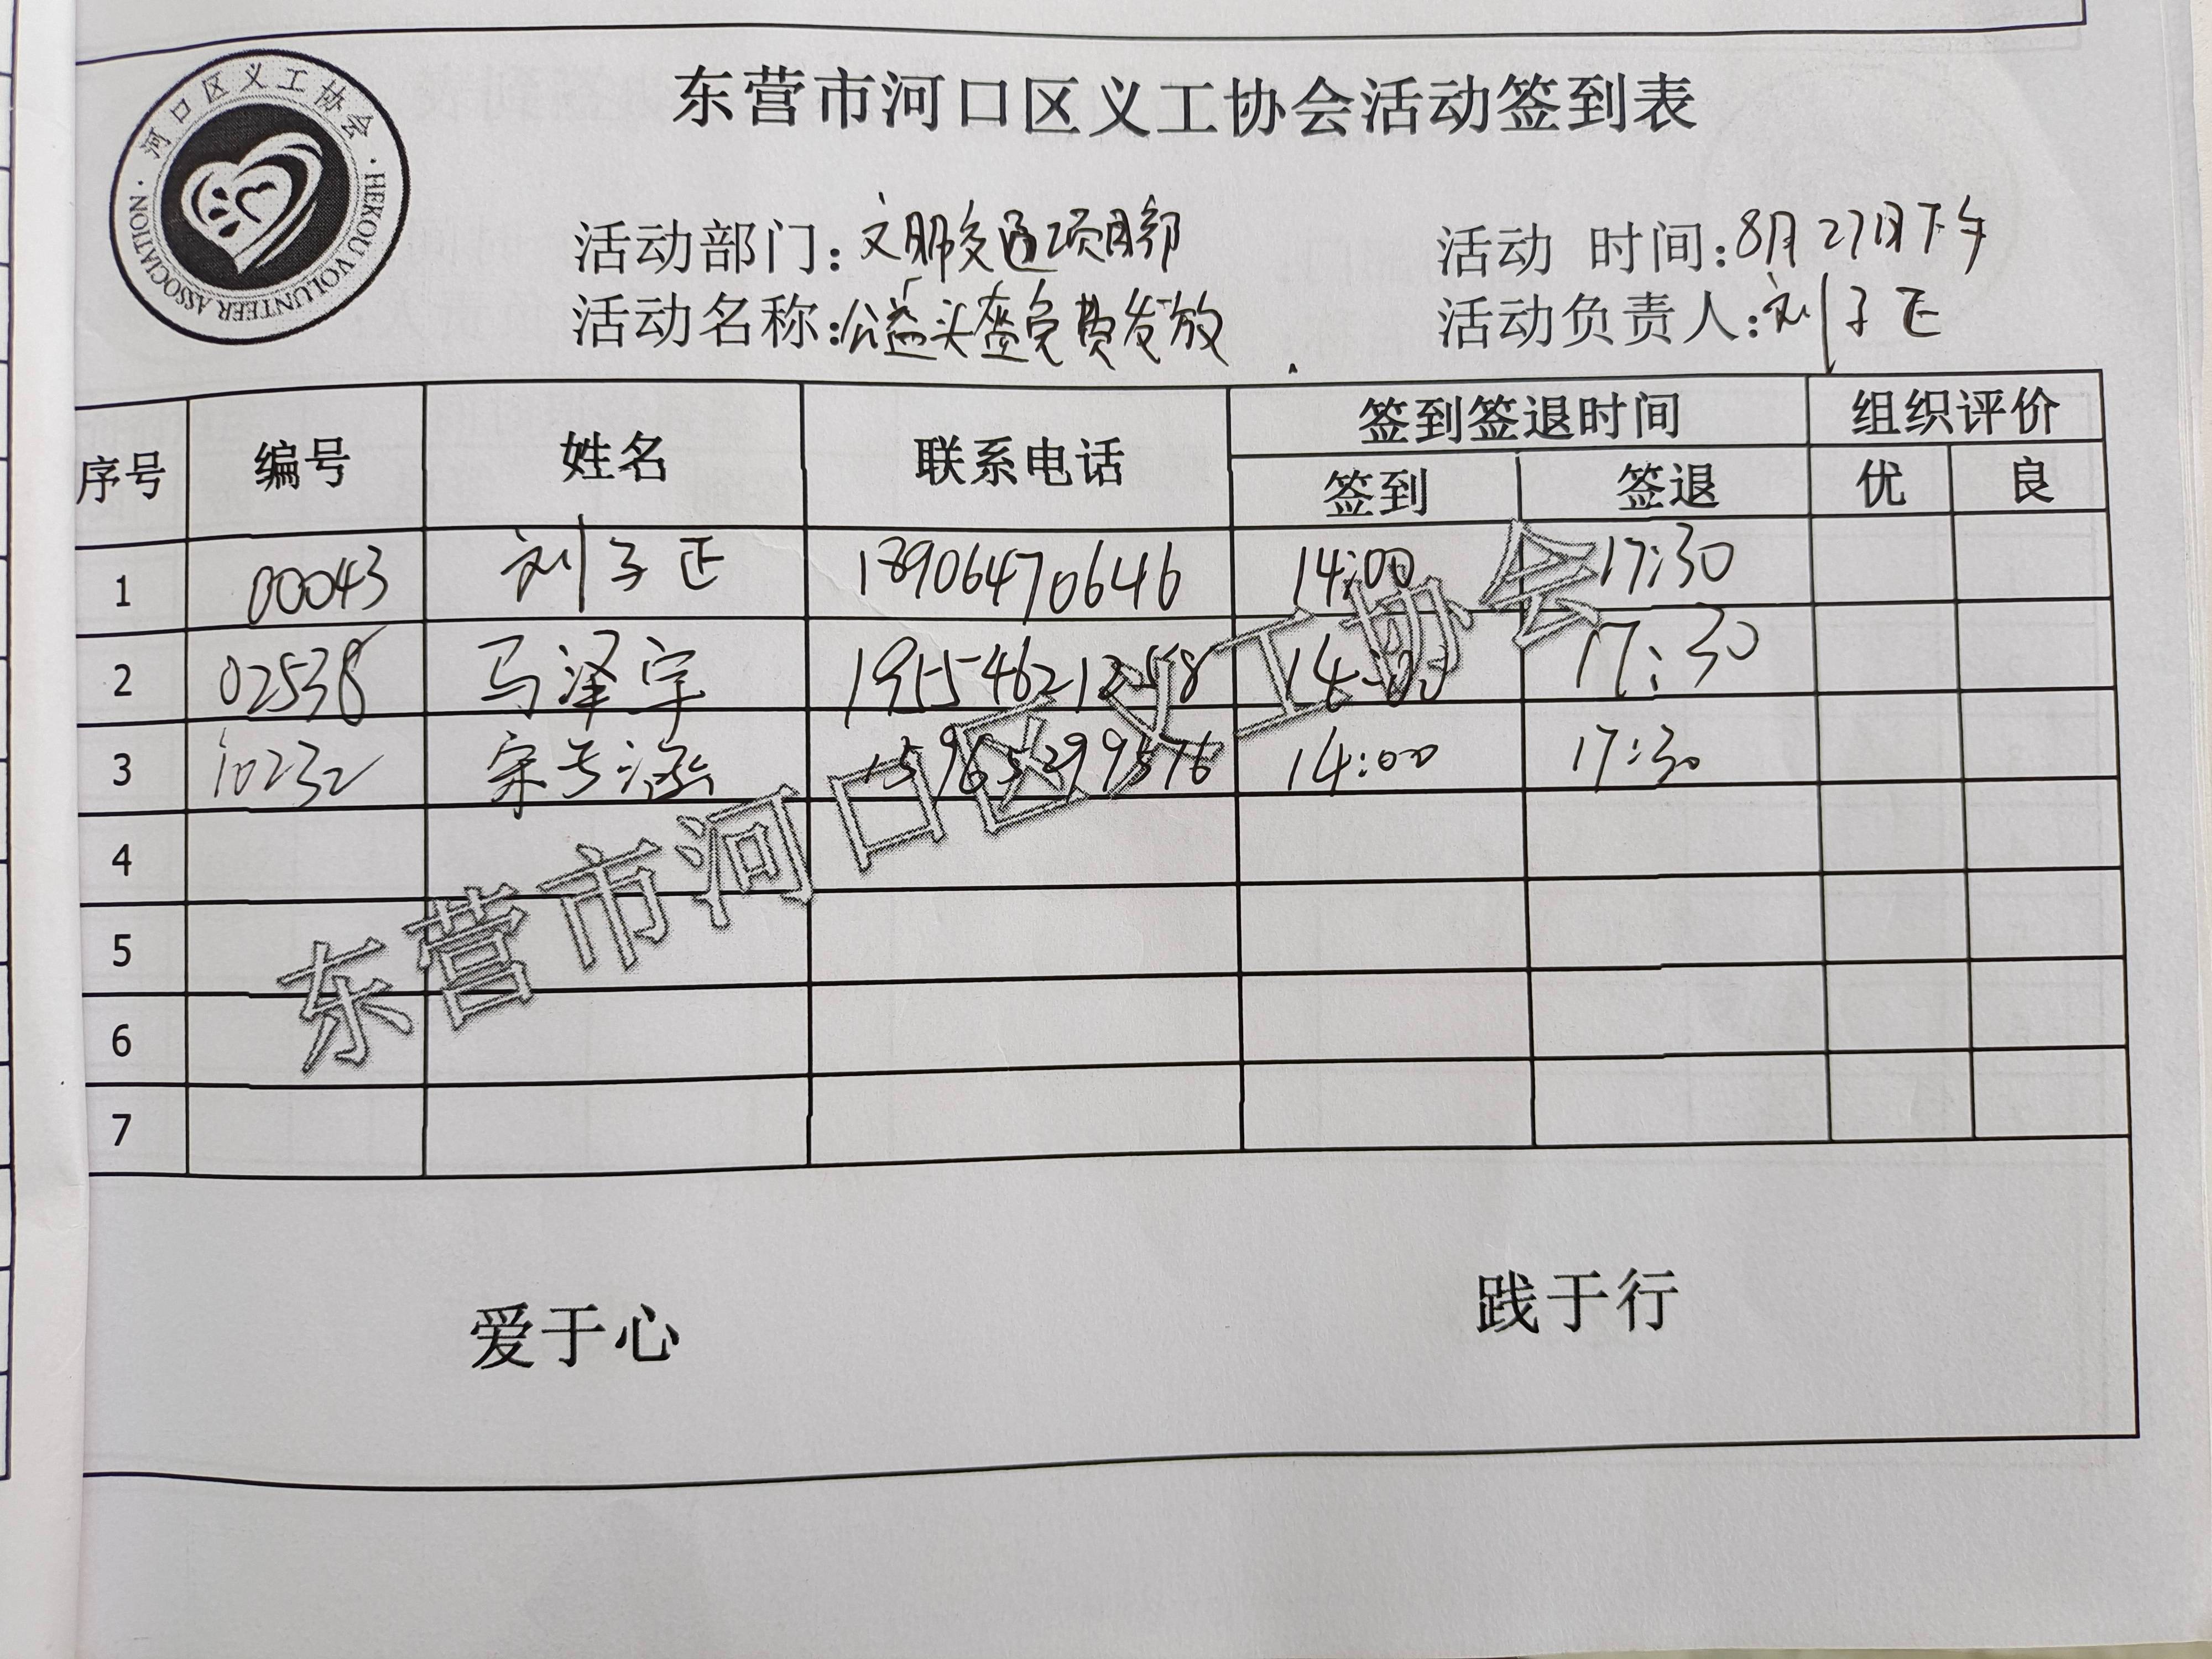 河口区义工协会
HEKOU VOLUNTEER ASSOCIATION
东营市河口区义工协会活动签到表
活动部门：文明交通项目部 活动 时间：8月27日下午
活动名称：公益头盔免费发放 活动负责人：刘子正
序号 编号 姓名 联系电话 签到签退时间 组织评价
签到 签退 优 良
1 00043 刘子正 18906470646 14:00 17:30
2 02538 马泽宇 14:00 17:30
3 10232 宋 涵 15965299576 14:00 17:30
4
5
6
7
东营市河口区义工协会
爱于心 践于行